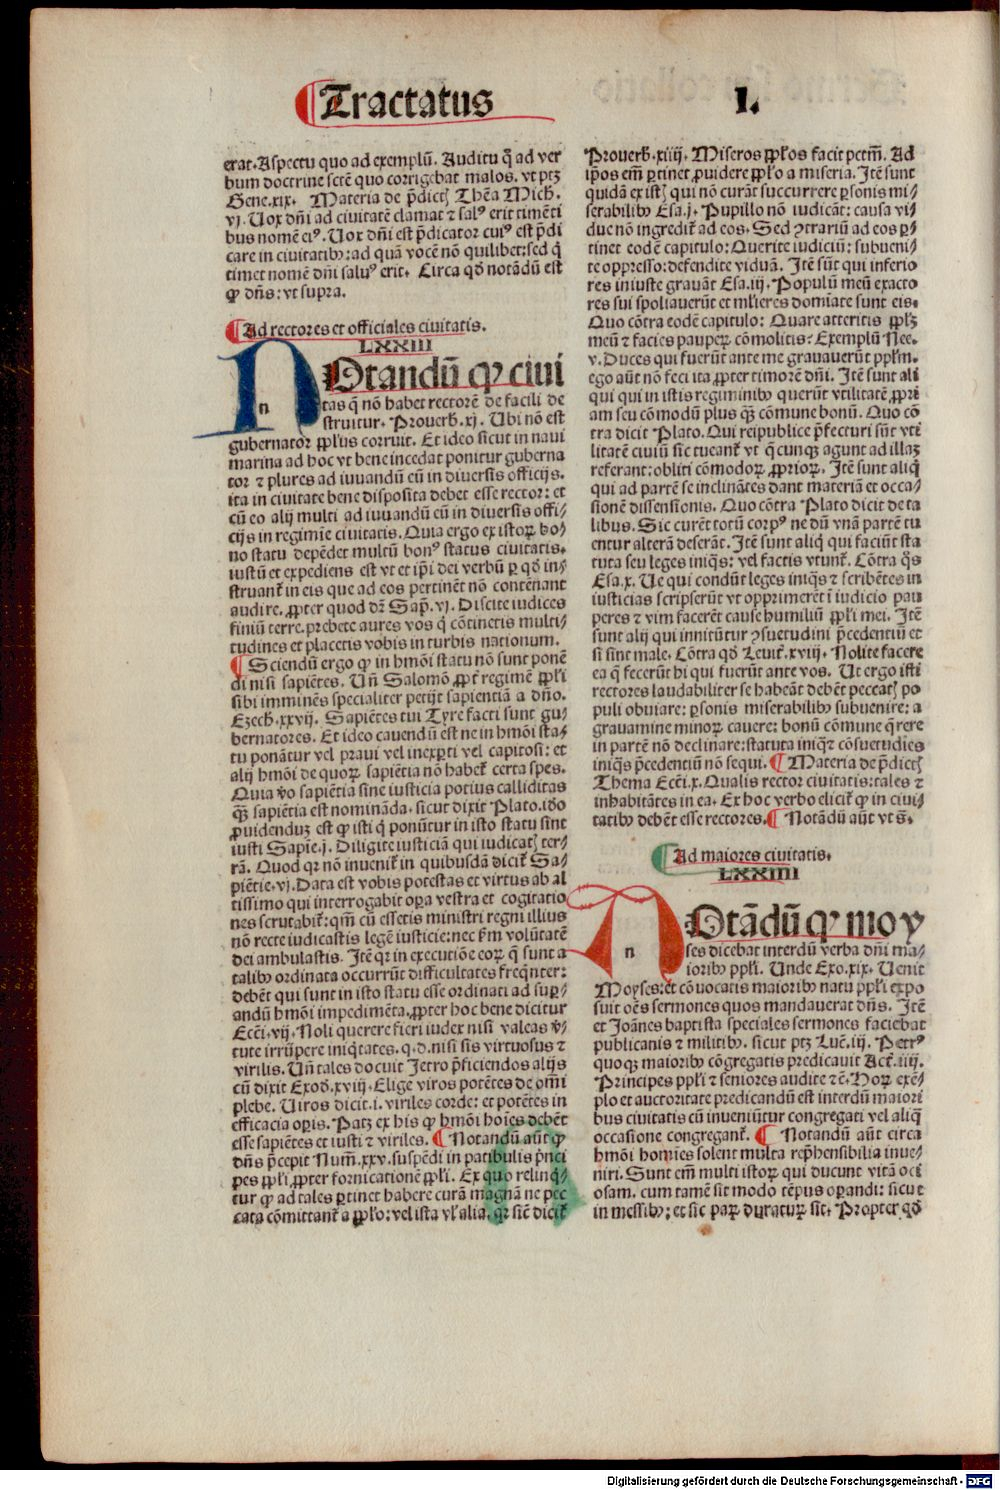 Tractatus I.
erat. Aspectu quo ad exemplū. Auditu q̄ ad ver
bum doctrine sctē quo corrigebat malos. vt ptꝫ
Gene.xix. Materia de p̄dictꝭ Thēa Mich.
vj. Uox dn̄i ad ciuitatē clamat ⁊ salꝰ erit timēti
bus nomē eiꝰ. Uox dn̄i est p̄dicator cuiꝰ est p̄di
care in ciuitatibꝰ: ad quā vocē nō quilibet: sed q̇
timet nomē dn̄i saluꝰ erit. Circa qd̄ notādū est
ꝙ dn̄s: vt supra.
Ad rectores et officiales ciuitatis.
LXXIII
n Otandū ꝙ ciui
tas q̄ nō habet rectorē de facili de
struitur. Prouerb.xj. Ubi nō est
gubernator ppl̓us corruit. Et ideo sicut in naui
marina ad hoc vt bene incedat ponitur guberna
tor ⁊ plures ad iuuandū eū in diuersis officijs.
ita in ciuitate bene disposita debet esse rector: et
cū eo alij multi ad iuuandū eū in diuersis offi⸗
cijs in regimīe ciuitatis. Quia ergo ex istoꝝ bo⸗
no statu depēdet multū bonꝰ status ciuitatis.
iustū et expediens est vt et ip̄i dei verbū ꝑ qd̄ in⸗
struant᷑ in eis que ad eos pertinēt nō contēnant
audire. ꝓpter quod dꝛ Sap̄.vj. Discite iudices
finiū terre. prebete aures vos q̇ cōtinetis multi⸗
tudines et placetis vobis in turbis nationum.
Sciendū ergo ꝙ in hmōi statu nō sunt ponē
di nisi sapiētes. Un̄ Salomō ꝓpt̓ regimē ppl̓i
sibi imminēs specialiter petijt sapientiā a dn̄o.
Ezech.xxvij. Sapiētes tui Tyre facti sunt gu⸗
bernatores. Et ideo cauendū est ne in hmōi sta⸗
tu ponātur vel praui vel inexꝑti vel capitosi: et
alij hmōi de quoꝝ sapiētia nō habet᷑ certa spes.
Quia v̄o sapiētia sine iusticia potius calliditas
qꝫ sapiētia est nomināda. sicut dixit Plato. iō
ꝓuidenduꝫ est ꝙ isti q̇ ponūtur in isto statu sint
iusti Sapiē.j. Diligite iusticiā qui iudicatꝭ ter⸗
rā. Quod qꝛ nō inuenit᷑ in quibusdā dicit᷑ Sa⸗
piētie.vj. Data est vobis potestas et virtus ab al
tissimo qui interrogabit oꝑa vestra et cogitatio
nes scrutabit᷑: qm̄ cū essetis ministri regni illius
nō recte iudicastis legē iusticie: nec ẜm volūtatē
dei ambulastis. Itē qꝛ in executiōe eoꝝ q̄ sunt a
talibꝰ ordinata occurrūt difficultates freq̄nter:
debēt qui sunt in isto statu esse ordinati ad suꝑ⸗
andū hmōi impedimēta. ꝓpter hoc bene dicitur
Ecci̓.vij. Noli querere fieri iudex nisi valeas v̓⸗
tute irrūpere iniq̇tates. q.d. nisi sis virtuosus ⁊
virilis. Un̄ tales docuit Jetro p̄ficiendos alijs
cū dixit Exod.xviij. Elige viros potētes de om̄i
plebe. Uiros dicit.i. viriles corde: et potētes in
efficacia oꝑis. Patꝫ ex his ꝙ hmōi hoīes debēt
esse sapiētes et iusti ⁊ viriles. Notandū aūt ꝙ
dn̄s p̄cepit Num̄.xxv. suspēdi in patibulis p̓nci
pes ppl̓i ꝓpter fornicationē ppl̓i. Ex quo relinq̇⸗
tur ꝙ ad tales ꝑtinet habere curā magnā ne pec
cata cōmittant᷑ a ppl̓o: vel ista vl̓ alia. qꝛ sic̄ dicit᷑
Prouerb.xiiij. Miseros ppl̓os facit pctm̄. Ad
ip̄os em̄ ꝑtinet ꝓuidere ppl̓o a miseria. Itē sunt
quidā ex istꝭ qui nō curāt succurrere ꝑsonis mi⸗
serabilibꝰ Esa.j. Pupillo nō iudicāt: causa vi⸗
due nō ingredit᷑ ad eos. Sed ↄtrariū ad eos ꝑ⸗
tinet eodē capitulo: Querite iudiciū: subueni⸗
te oppresso: defendite viduā. Itē sūt qui inferio
res iniuste grauāt Esa.iij. Populū meū exacto
res sui spoliauerūt et ml̓ieres domīate sunt eis.
Quo cōtra eodē capitulo: Quare atteritis ppl̓ꝫ
meū ⁊ facies pauperꝝ cōmolitis? Exemplū Nee.
v. Duces qui fuerūt ante me grauauerūt ppl̓m.
ego aūt nō feci ita ꝓpter timorē dn̄i. Itē sunt ali
qui qui in istis regiminibꝰ querūt vtilitatē ꝓpri
am seu cōmodū plus qꝫ cōmune bonū. Quo cō
tra dicit Plato. Qui reipublice p̄fecturi sūt vti
litatē ciuiū sic tueant᷑ vt q̄cunqꝫ agunt ad illaꝫ
referant: obliti cōmodoꝝ ꝓprioꝝ. Itē sunt aliq̇
qui ad partē se inclināntes dant materiā et occa⸗
sionē dissensiōnis. Quo cōtra Plato dicit de ta
libus. Sic curēt totū corpꝰ ne dū vnā partē tu
entur alterā deserāt. Itē sunt aliq̇ qui faciūt sta
tuta seu leges iniq̄s: vel factis vtunt᷑. Cōtra q̄s
Esa.x. Ue qui condūt leges iniq̄s ⁊ scribētes in
iusticias scripserūt vt opprimerēt ī iudicio pau
peres ⁊ vim facerēt cause humiliū ppl̓i mei. Itē
sunt alij qui innitūtur ↄsuetudini p̄cedentiū et
si sint male. Cōtra qd̄ Leuit̓.xviij. Nolite facere
ea q̄ fecerūt hi qui fuerūt ante vos. Ut ergo isti
rectores laudabiliter se habeāt debēt peccatꝭ po
puli obuiare: ꝑsonis miserabilibꝰ subuenire: a
grauamine minoꝝ cauere: bonū cōmune q̄rere
in partē nō declinare: statuta iniq̄ ⁊ cōsuetudīes
iniq̄s p̄cedentiū nō sequi. Materia de p̄dictꝭ
Thema Ecci̓.x. Qualis rector ciuitatis: tales ⁊
inhabitātes in ea. Ex hoc verbo elicit᷑ ꝙ in ciui⸗
tatibꝰ debēt esse rectores. Notādū aūt vt s̄.
Ad maiores ciuitatis.
LXXIIII
n Otādū ꝙ moy
ses dicebat interdū verba dn̄i ma⸗
ioribꝰ ppl̓i. Unde Exo.xix. Uenit
Moyses: et cōuocatis maioribꝰ natu ppl̓i expo
suit oēs sermones quos mandauerat dn̄s. Itē
et Joānes baptista speciales sermones faciebat
publicanis ⁊ militibꝰ. sicut ptꝫ Luc̄.iij. Petrꝰ
quoqꝫ maioribꝰ cōgregatis predicauit Act̄.iiij.
Principes ppl̓i ⁊ seniores audite ⁊c̄. Hoꝝ exē⸗
plo et auctoritate predicandū est interdū maiori
bus ciuitatis cū inueniūtur congregati vel aliq̄
occasione congregant᷑. Notandū aūt circa
hmōi homīes solent multa rep̄hensibilia inue⸗
niri. Sunt em̄ multi istoꝝ qui ducunt vitā oci
osam. cum tamē sit modo tēpus oꝑandi: sicut
in messibꝰ: et sic paꝝ duraturꝝ sit. Propter qd̄
Digitalisierung gefördert durch die Deutsche Forschungsgemeinschaft - DFG